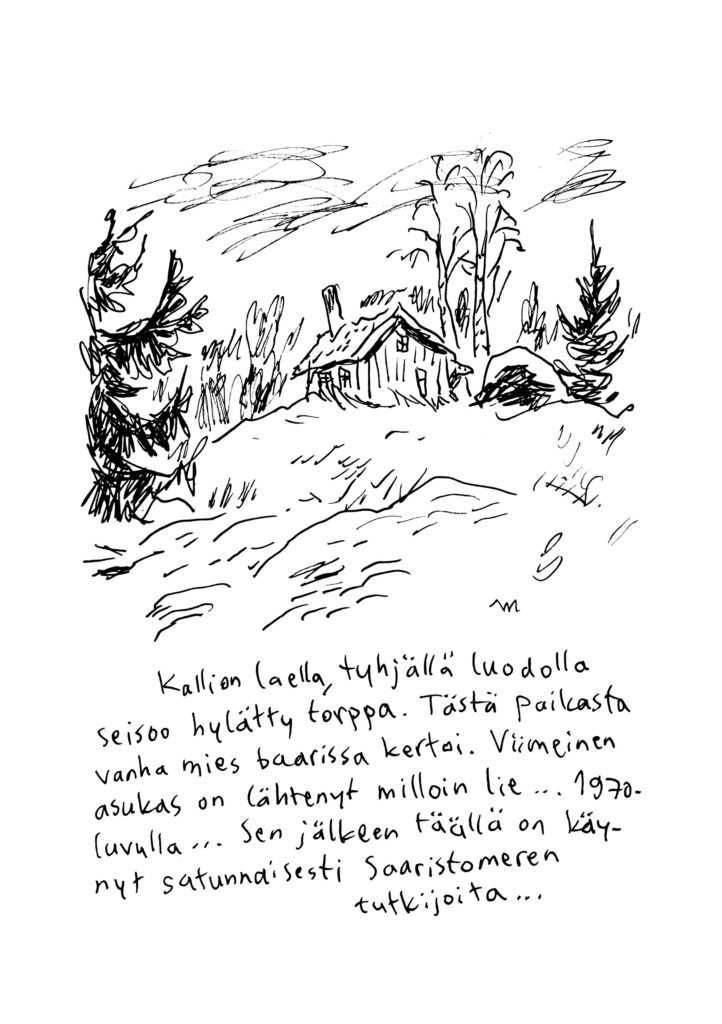 Kallion laella, tyhjällä luodolla
seisoo hylätty torppa. Tästä paikasta
vanha mies baarissa kertoi. Viimeinen
asukas on lähtenyt milloin lie... 1970-
luvulla... Sen jälkeen täällä on käy-
nyt satunnaisesti Saaristomeren
tutkijoita...